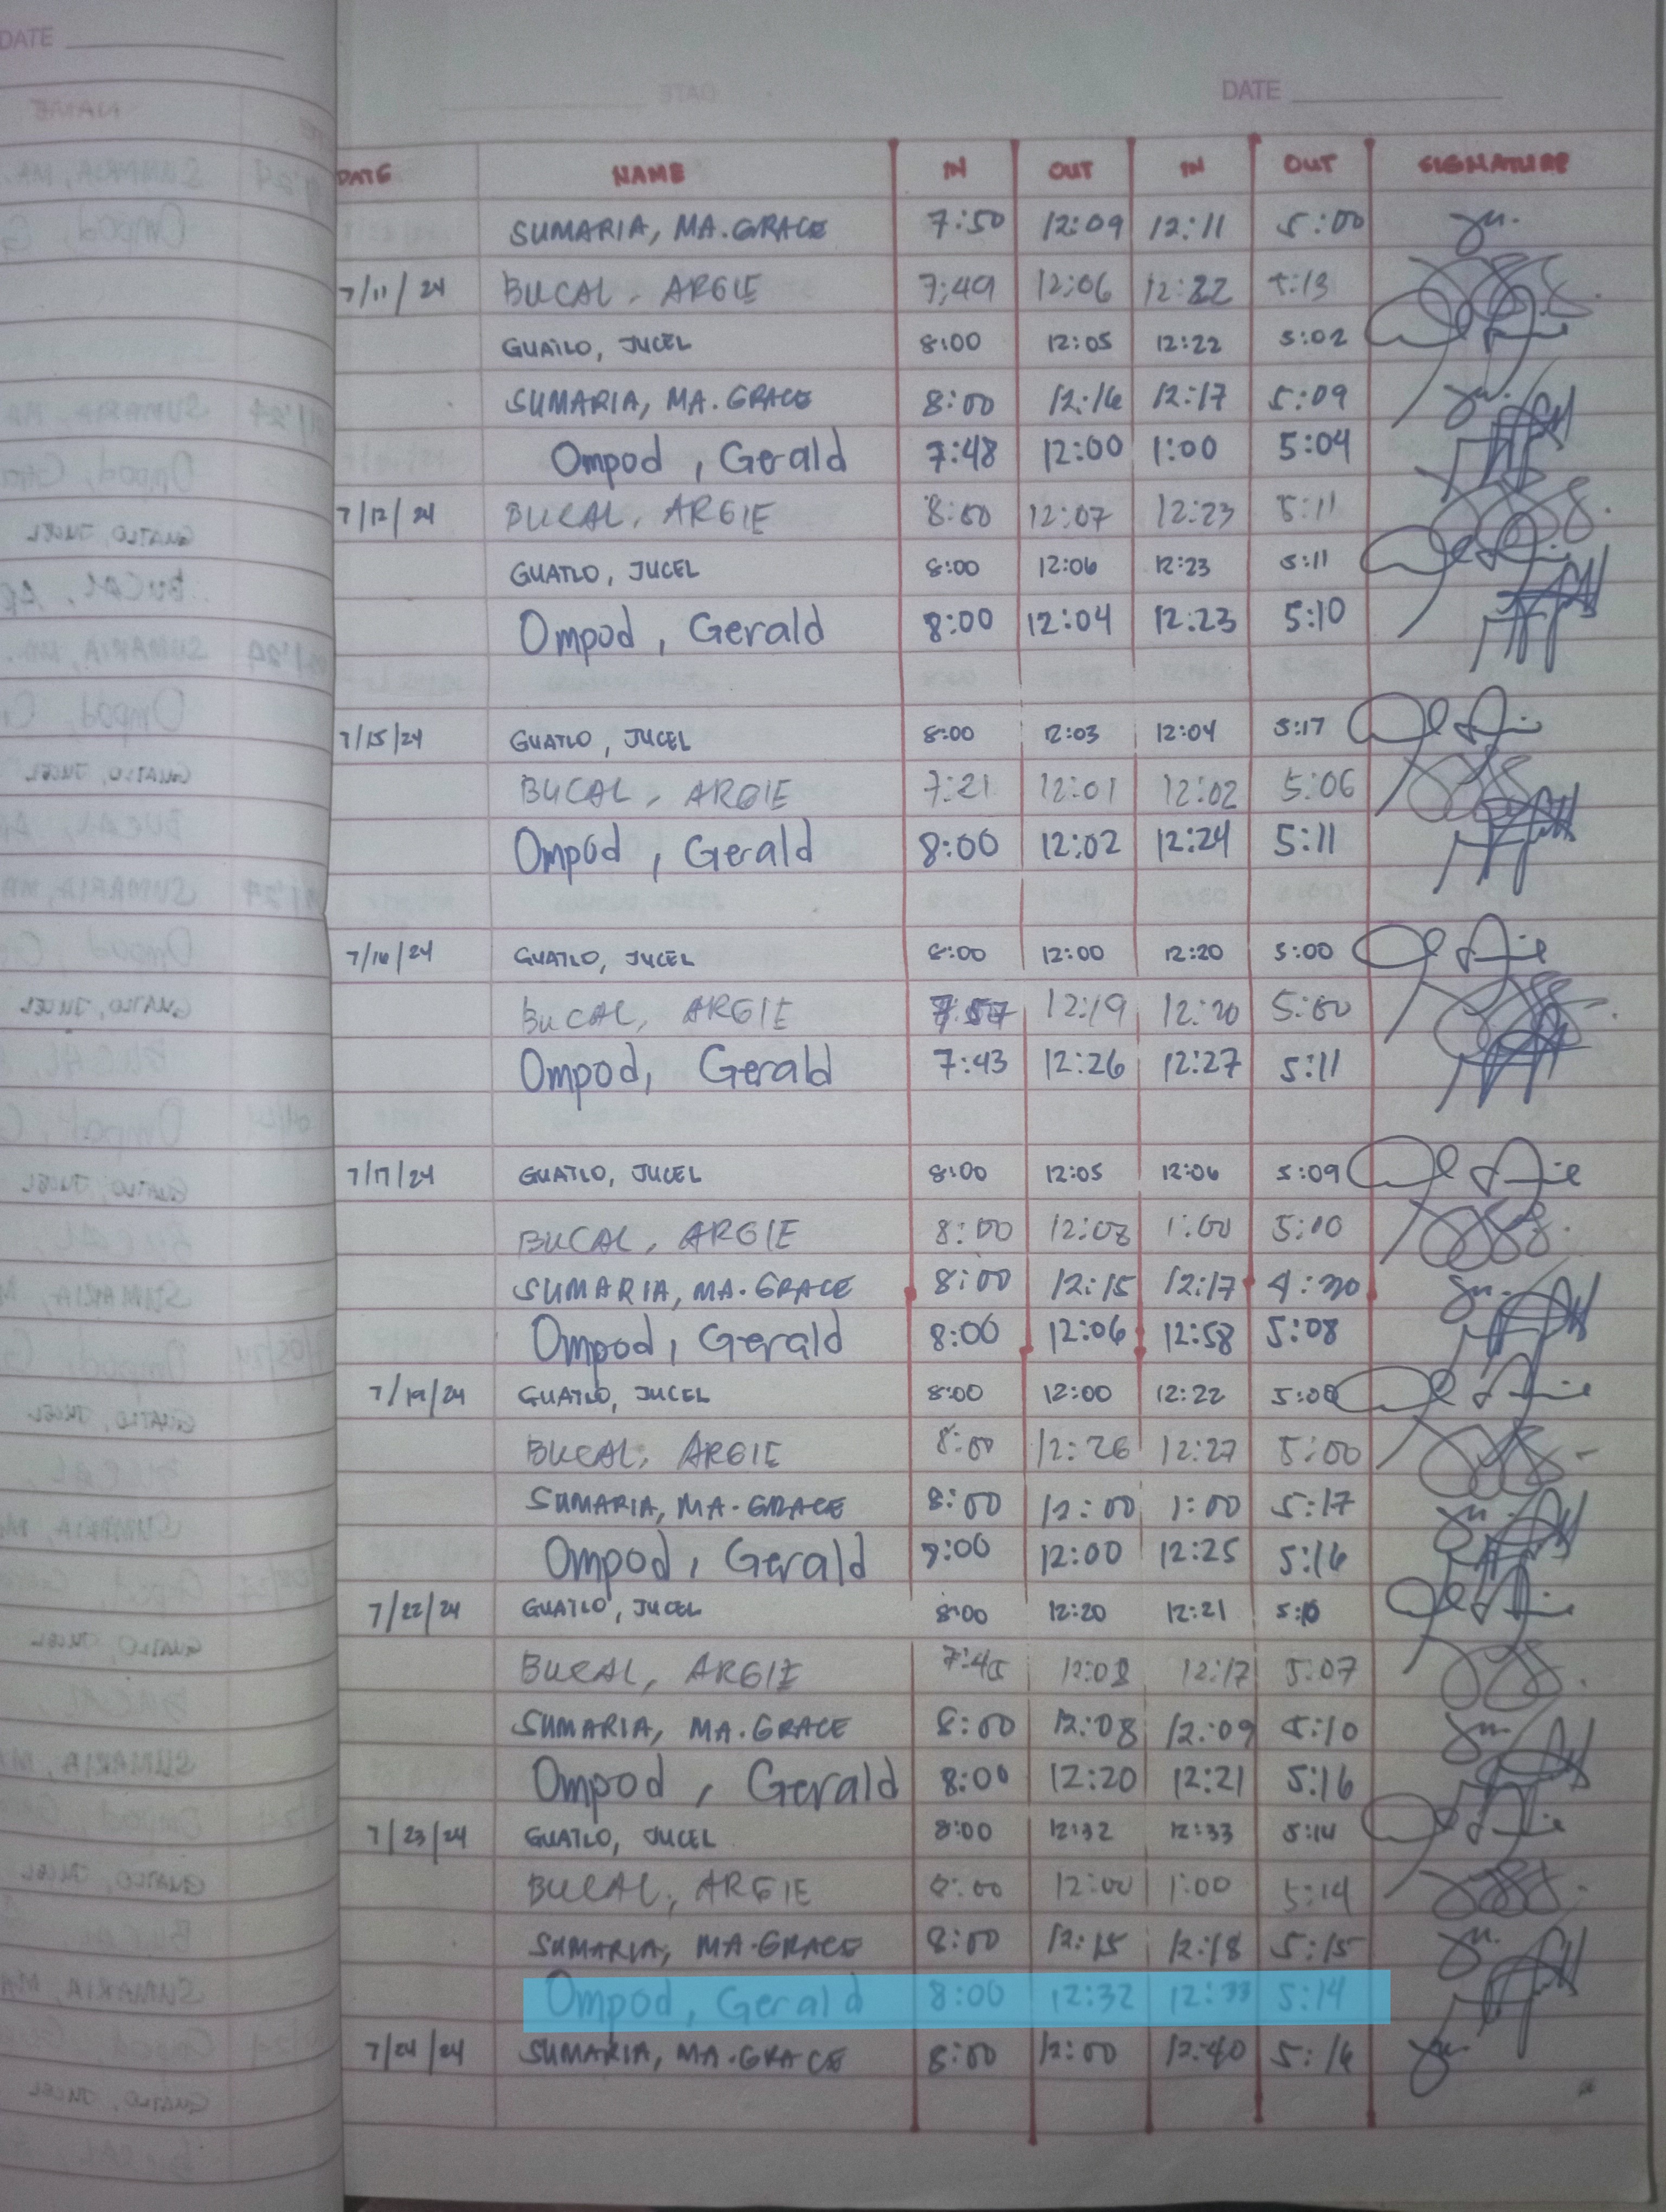 DATE
DATE
DATE NAME IN OUT IN OUT SIGNATURE
SUMARIA, MA. GRACE 7:50 12:09 12:11 5:00
7/11/24 BUCAL, ARGIE 7:49 12:06 12:22 5:13
GUATLO, JUCEL 8:00 12:05 12:22 5:02
SUMARIA, MA. GRACE 8:00 12:16 12:17 5:09
Ompod, Gerald 7:48 12:00 1:00 5:04
7/12/24 BUCAL, ARGIE 8:00 12:07 12:23 5:11
GUATLO, JUCEL 8:00 12:06 12:23 5:11
Ompod, Gerald 8:00 12:04 12:23 5:10
7/15/24 GUATLO, JUCEL 8:00 12:03 12:04 5:17
BUCAL, ARGIE 7:21 12:01 12:02 5:06
Ompod, Gerald 8:00 12:02 12:24 5:11
7/16/24 GUATLO, JUCEL 8:00 12:00 12:20 5:00
BUCAL, ARGIE 7:57 12:19 12:20 5:00
Ompod, Gerald 7:43 12:26 12:27 5:11
7/17/24 GUATLO, JUCEL 8:00 12:05 12:06 5:09
BUCAL, ARGIE 8:00 12:08 1:00 5:00
SUMARIA, MA. GRACE 8:00 12:15 12:17 4:30
Ompod, Gerald 8:00 12:06 12:58 5:08
7/19/24 GUATLO, JUCEL 8:00 12:00 12:22 5:00
BUCAL, ARGIE 8:00 12:26 12:27 5:00
SUMARIA, MA. GRACE 8:00 12:00 1:00 5:17
Ompod, Gerald 12:00 12:25 5:16
7/22/24 GUATLO, JUCEL 8:00 12:20 12:21
BUCAL, ARGIE 7:45 12:08 12:17 5:07
SUMARIA, MA. GRACE 8:00 12:08 12:09 5:10
Ompod, Gerald 8:00 12:20 12:21 5:16
7/23/24 GUATLO, JUCEL 8:00 12:32 12:33 5:14
BUCAL, ARGIE 8:00 12:00 1:00 5:14
SUMARIA, MA. GRACE 8:00 12:15 12:18 5:15
Ompod, Gerald 8:00 12:32 12:33 5:14
7/24/24 SUMARIA, MA. GRACE 8:00 12:00 12:40 5:16